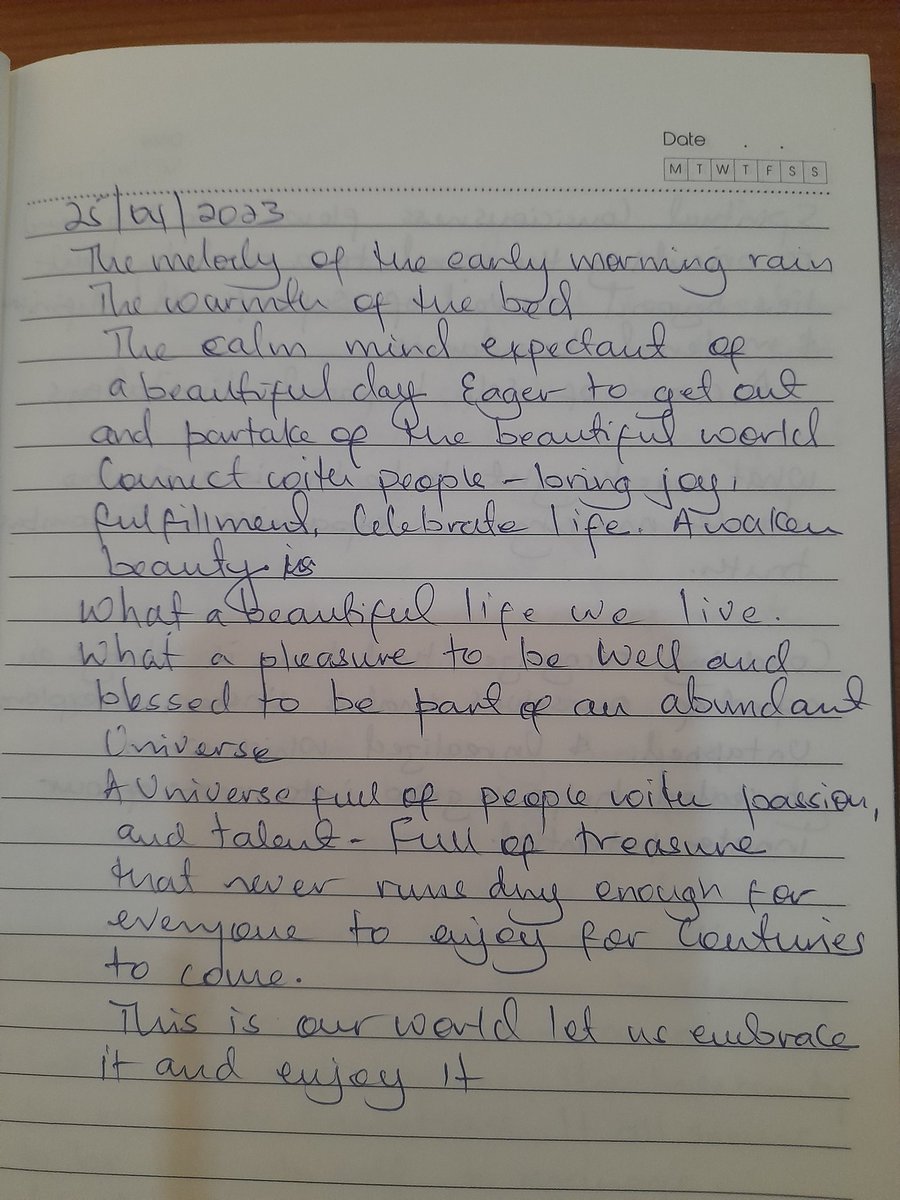 Date . .
M T W T F S S
25/04/2023
The melody of the early morning rain
The warmth of the bed
The calm mind expectant of
a beautiful day Eager to get out
and partake of the beautiful world
Connect with people - bring joy,
fulfillment, Celebrate life. Awaken
beauty.
What a beautiful life we live.
What a pleasure to be well and
blessed to be part of an abundant
Universe
A Universe full of people with passion,
and talent - Full of treasure
that never runs dry enough for
everyone to enjoy for Centuries
to come.
This is our world let us embrace
it and enjoy it